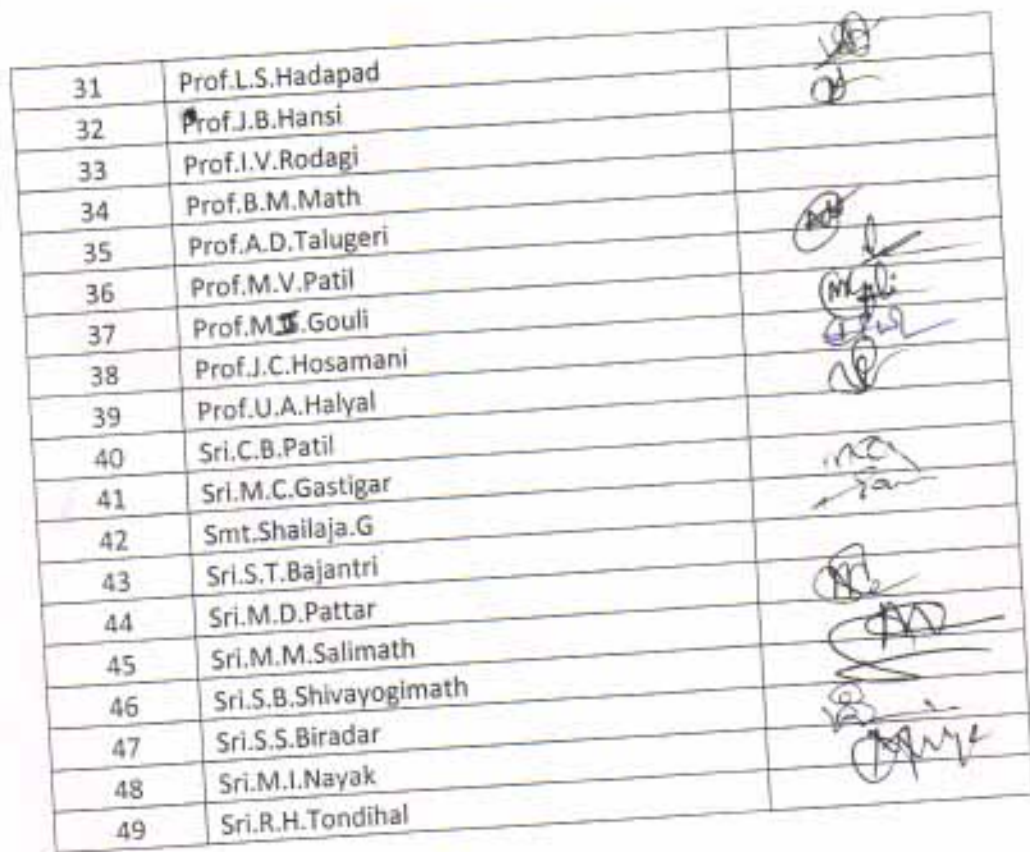 31 Prof.L.S.Hadapad
32 Prof.J.B.Hansi
33 Prof.I.V.Rodagi
34 Prof.B.M.Math
35 Prof.A.D.Talugeri
36 Prof.M.V.Patil
37 Prof.M.I.Gouli
38 Prof.J.C.Hosamani
39 Prof.U.A.Halyal
40 Sri.C.B.Patil
41 Sri.M.C.Gastigar
42 Smt.Shailaja.G
43 Sri.S.T.Bajantri
44 Sri.M.D.Pattar
45 Sri.M.M.Salimath
46 Sri.S.B.Shivayogimath
47 Sri.S.S.Biradar
48 Sri.M.I.Nayak
49 Sri.R.H.Tondihal